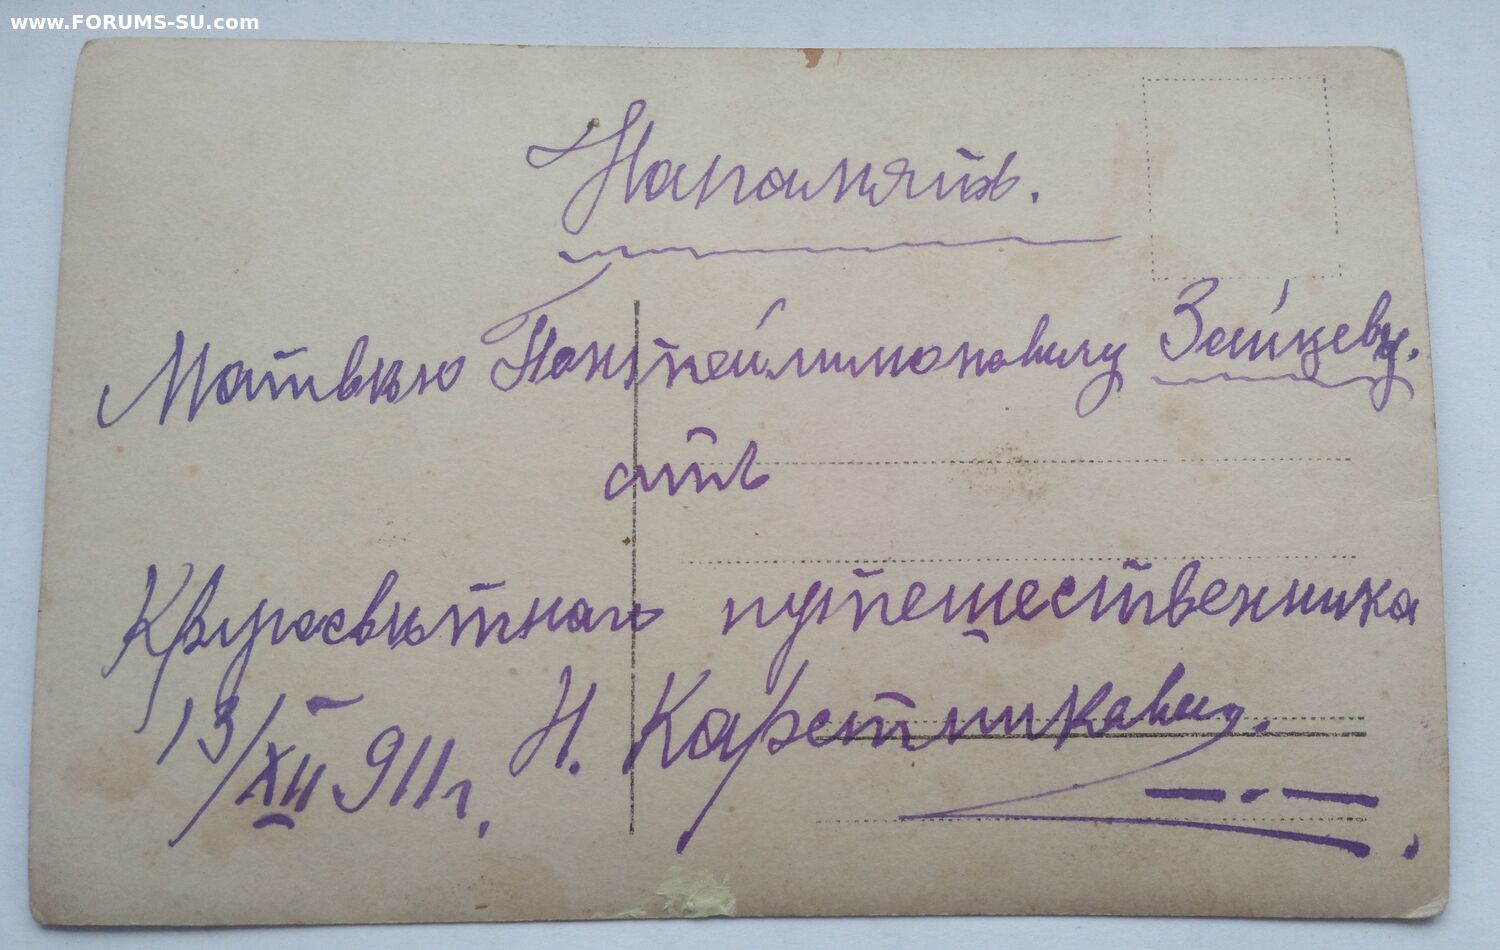 www.FORUMS-SU.com
Напамять.
Матвѣю Пантеилимоновичу Зайцеву.
отъ
Кругосвѣтнаго путешественника
13/XII 911г. Н.